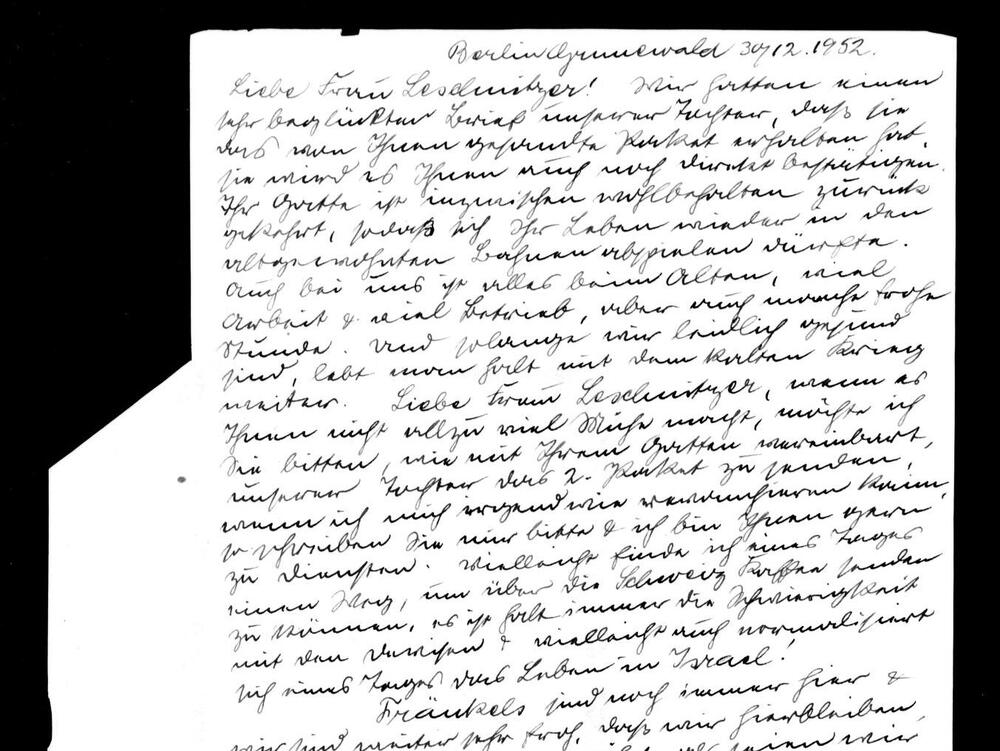 Berlin Grunewald 30/12.1952.
Liebe Frau Leschnitzer! Wir hatten einen
sehr beglückten Brief unserer Tochter, daß sie
das von Ihnen gesandte Paket erhalten hat,
sie wird es Ihnen auch noch direkt bestätigen.
Ihr Gatte ist inzwischen wohlbehalten zurück
gekehrt, sodaß sich Ihr Leben wieder in den
altgewohnten Bahnen abspielen dürfte.
Auch bei uns ist alles beim Alten, viel
Arbeit & viel Betrieb, aber auch manche frohe
Stunde. Und solange wir leidlich gesund
sind, lebt man halt mit dem kalten Krieg
weiter. Liebe Frau Leschnitzer, wenn es
Ihnen nicht allzu viel Mühe macht, möchte ich
Sie bitten, wie mit Ihrem Gatten vereinbart,
unserer Tochter das 2. Paket zu senden,
wenn ich mich irgendwie revanchieren kann,
so schreiben Sie mir bitte & ich bin Ihnen gern
zu Diensten. Vielleicht finde ich eines Tages
einen Weg, um über die Schweiz Kaffee senden
zu können, es ist halt immer die Schwierigkeit
mit den Devisen & vielleicht auch normalisiert
sich eines Tages das Leben in Israel!
Fränkels sind noch immer hier &
wir sind weiter sehr froh, daß wir hierbleiben